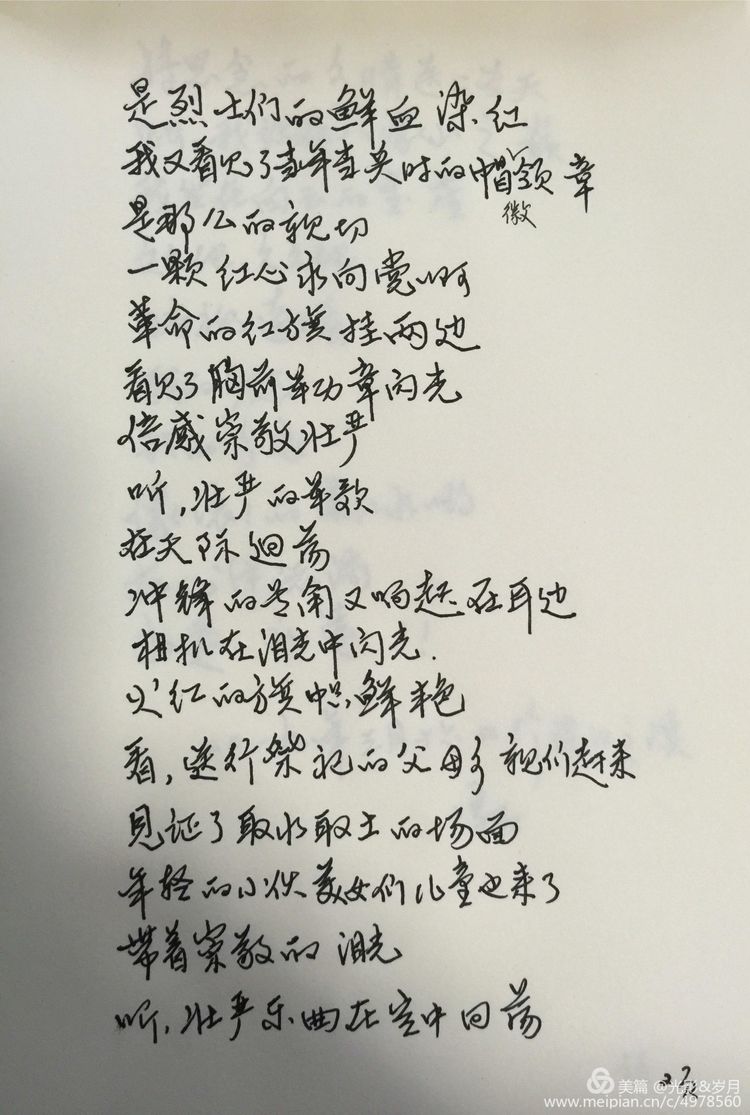 是烈士们的鲜血染红
我又看见了当年当兵时的帽徽领章
是那么的亲切
一颗红心永向党啊
革命的红旗挂两边
看见了胸前军功章闪光
倍感崇敬壮严
听,壮严的军歌
在天际迴荡
冲锋的号角又响起在耳边
相机在泪光中闪光.
火红的旗帜鲜艳
看,送行祭祀的父母乡亲们赶来
见证了取水取土的场面
年轻的小伙美女们儿童也来了
带着崇敬的泪光
听,壮严乐曲在空中回荡
美篇 @光影&岁月
www.meipian.cn/c/4978560